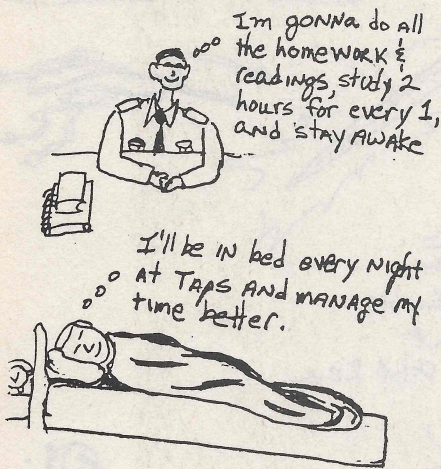 Im gonna do all
the homework &
readings, study 2
hours for every 1,
and stay awake
I'll be in bed every night
at Taps and manage my
time better.